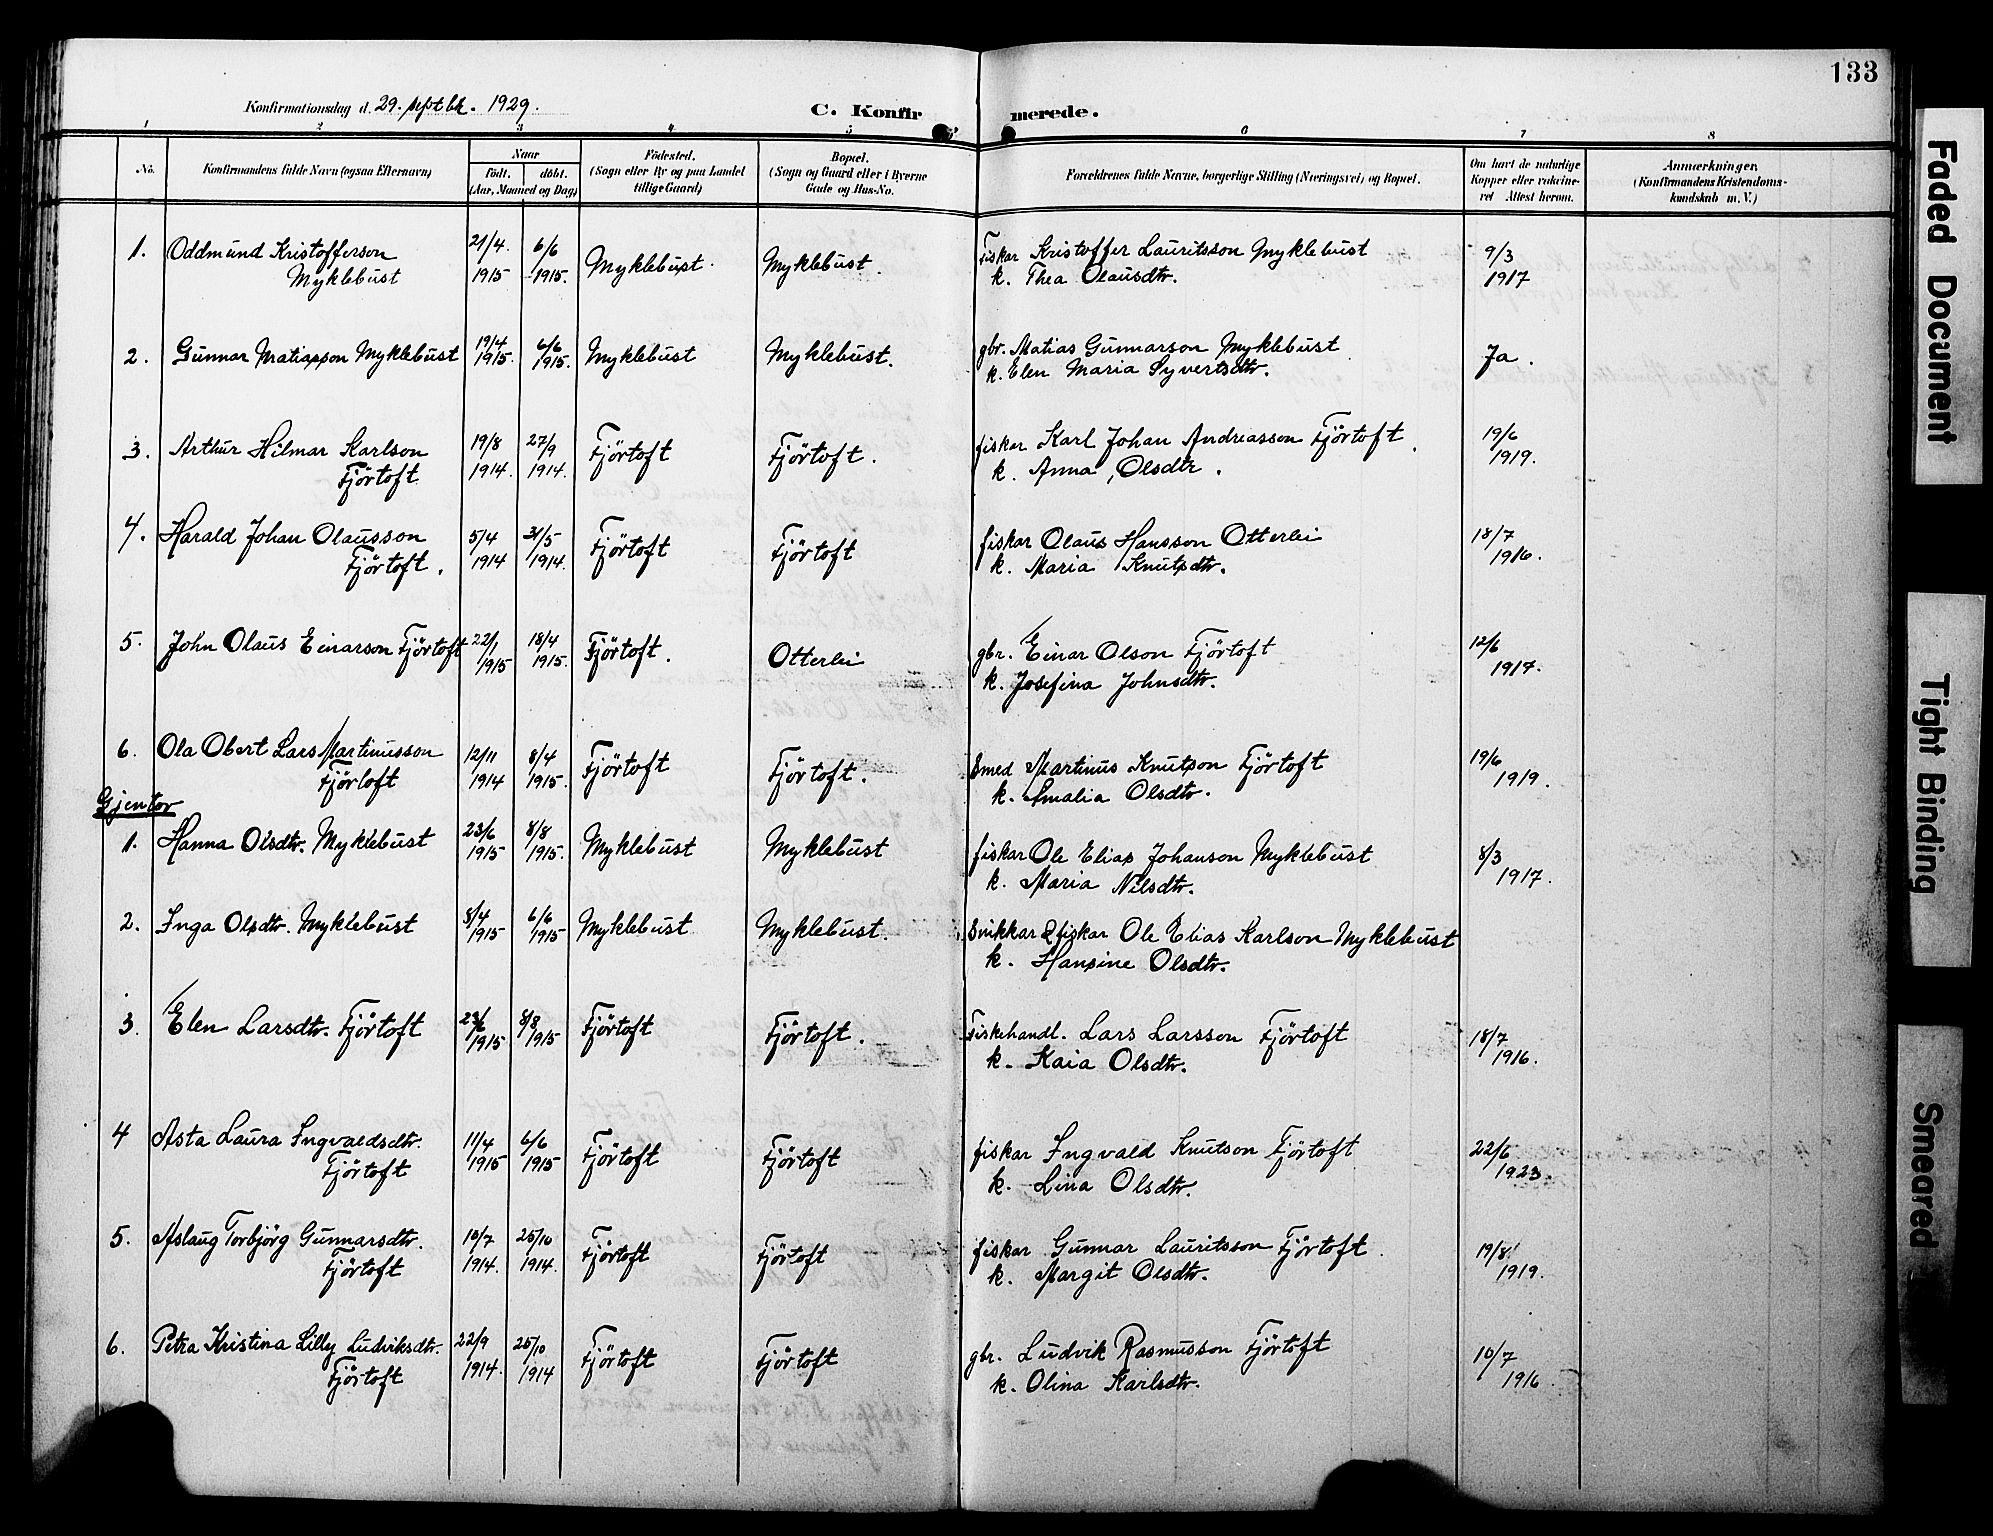 133
Konfirmationsdag d. 29. septbr. 1929.
C. Konfirmerede.
1 2 3 4 5 6 7 8
No.
Konfirmandens fulde Navn (ogsaa Efternavn)
Naar
födt. döbt.
(Aar, Maaned og Dag)
Födested.
(Sogn eller By og paa Landet
tillige Gaard)
Bopæl.
(Sogn og Gaard eller i Byerne
Gade og Hus-No.
Forældrenes fulde Navne, borgerlige Stilling (Næringsvei) og Bopæl.
Om havt de naturlige
Kopper eller vakcine-
ret Attest herom.
Anmærkninger.
(Konfirmandens Kristendoms-
kundskab m. V.)
1. Oddmund Kristofferson 21/4. 6/6 Myklebust. Myklebust. Fiskar Kristoffer Lauritsson Myklebust 9/3
Myklebust 1915 1915. k. Thea Olausdtr. 1917
2. Gunnar Matiasson Myklebust 19/4 6/6 Myklebust Myklebust. gbr. Matias Gunnarson Myklebust Ja.
1915. 1915. k. Elen Maria Syvertsdtr.
3. Arthur Hilmar Karlson 19/8 27/9 Fjörtoft Fjörtoft. fiskar Karl Johan Andreasson Fjörtoft. 19/6
Fjörtoft 1914. 1914. k. Anna, Olsdtr. 1919.
4. Harald Johan Olausson 5/4 31/5 Fjörtoft Fjörtoft fiskar Olaus Hansson Otterlei 18/7
Fjörtoft. 1914 1914. k. Maria Knutsdtr. 1916.
5. John Olaus Einarson Fjörtoft 22/1 18/4 Fjörtoft. Otterlei gbr. Einar Olson Fjörtoft 12/6
1915 1915. k. Josefina Johnsdtr. 1917.
6. Ola Obert Lars Martinusson 12/11 8/4 Fjörtoft Fjörtoft. Smed Martinus Knutson Fjörtoft 19/6
Fjörtoft 1914 1915. k. Amalia Olsdtr. 1919.
Gjentor
1. Hanna Olsdtr. Myklebust 23/6 8/8 Myklebust Myklebust fiskar Ole Elias Johanson Myklebust 8/3
1915 1915. k. Maria Nilsdtr. 1917.
2. Inga Olsdtr. Myklebust 8/4 6/6 Myklebust Myklebust. Snikkar & fiskar Ole Elias Karlson Myklebust
1915 1915 k. Hansine Olsdtr.
3. Elen Larsdtr. Fjörtoft 23/6 8/8 Fjörtoft Fjörtoft. Fiskehandl. Lars Larsson Fjörtoft 18/7
1915 1915 k. Kaia Olsdtr. 1916.
4 Asta Laura Ingvaldsdtr. 11/4 6/6 Fjörtoft Fjörtoft fiskar Ingvald Knutson Fjörtoft 22/6
Fjörtoft 1915 1915 k. Lina Olsdtr. 1923.
5. Aslaug Torbjörg Gunnarsdtr. 10/7 25/10 Fjörtoft Fjörtoft fiskar Gunnar Lauritsson Fjörtoft 19/8
Fjörtoft 1914. 1914. k. Margit Olsdtr. 1919.
6. Petra Kristina Lilly Ludviksdtr. 22/9 25/10 Fjörtoft Fjörtoft gbr. Ludvik Rasmusson Fjörtoft 10/7
Fjörtoft 1914. 1914 k. Olina Karlsdtr. 1916
Faded Document
Tight Binding
Smeared